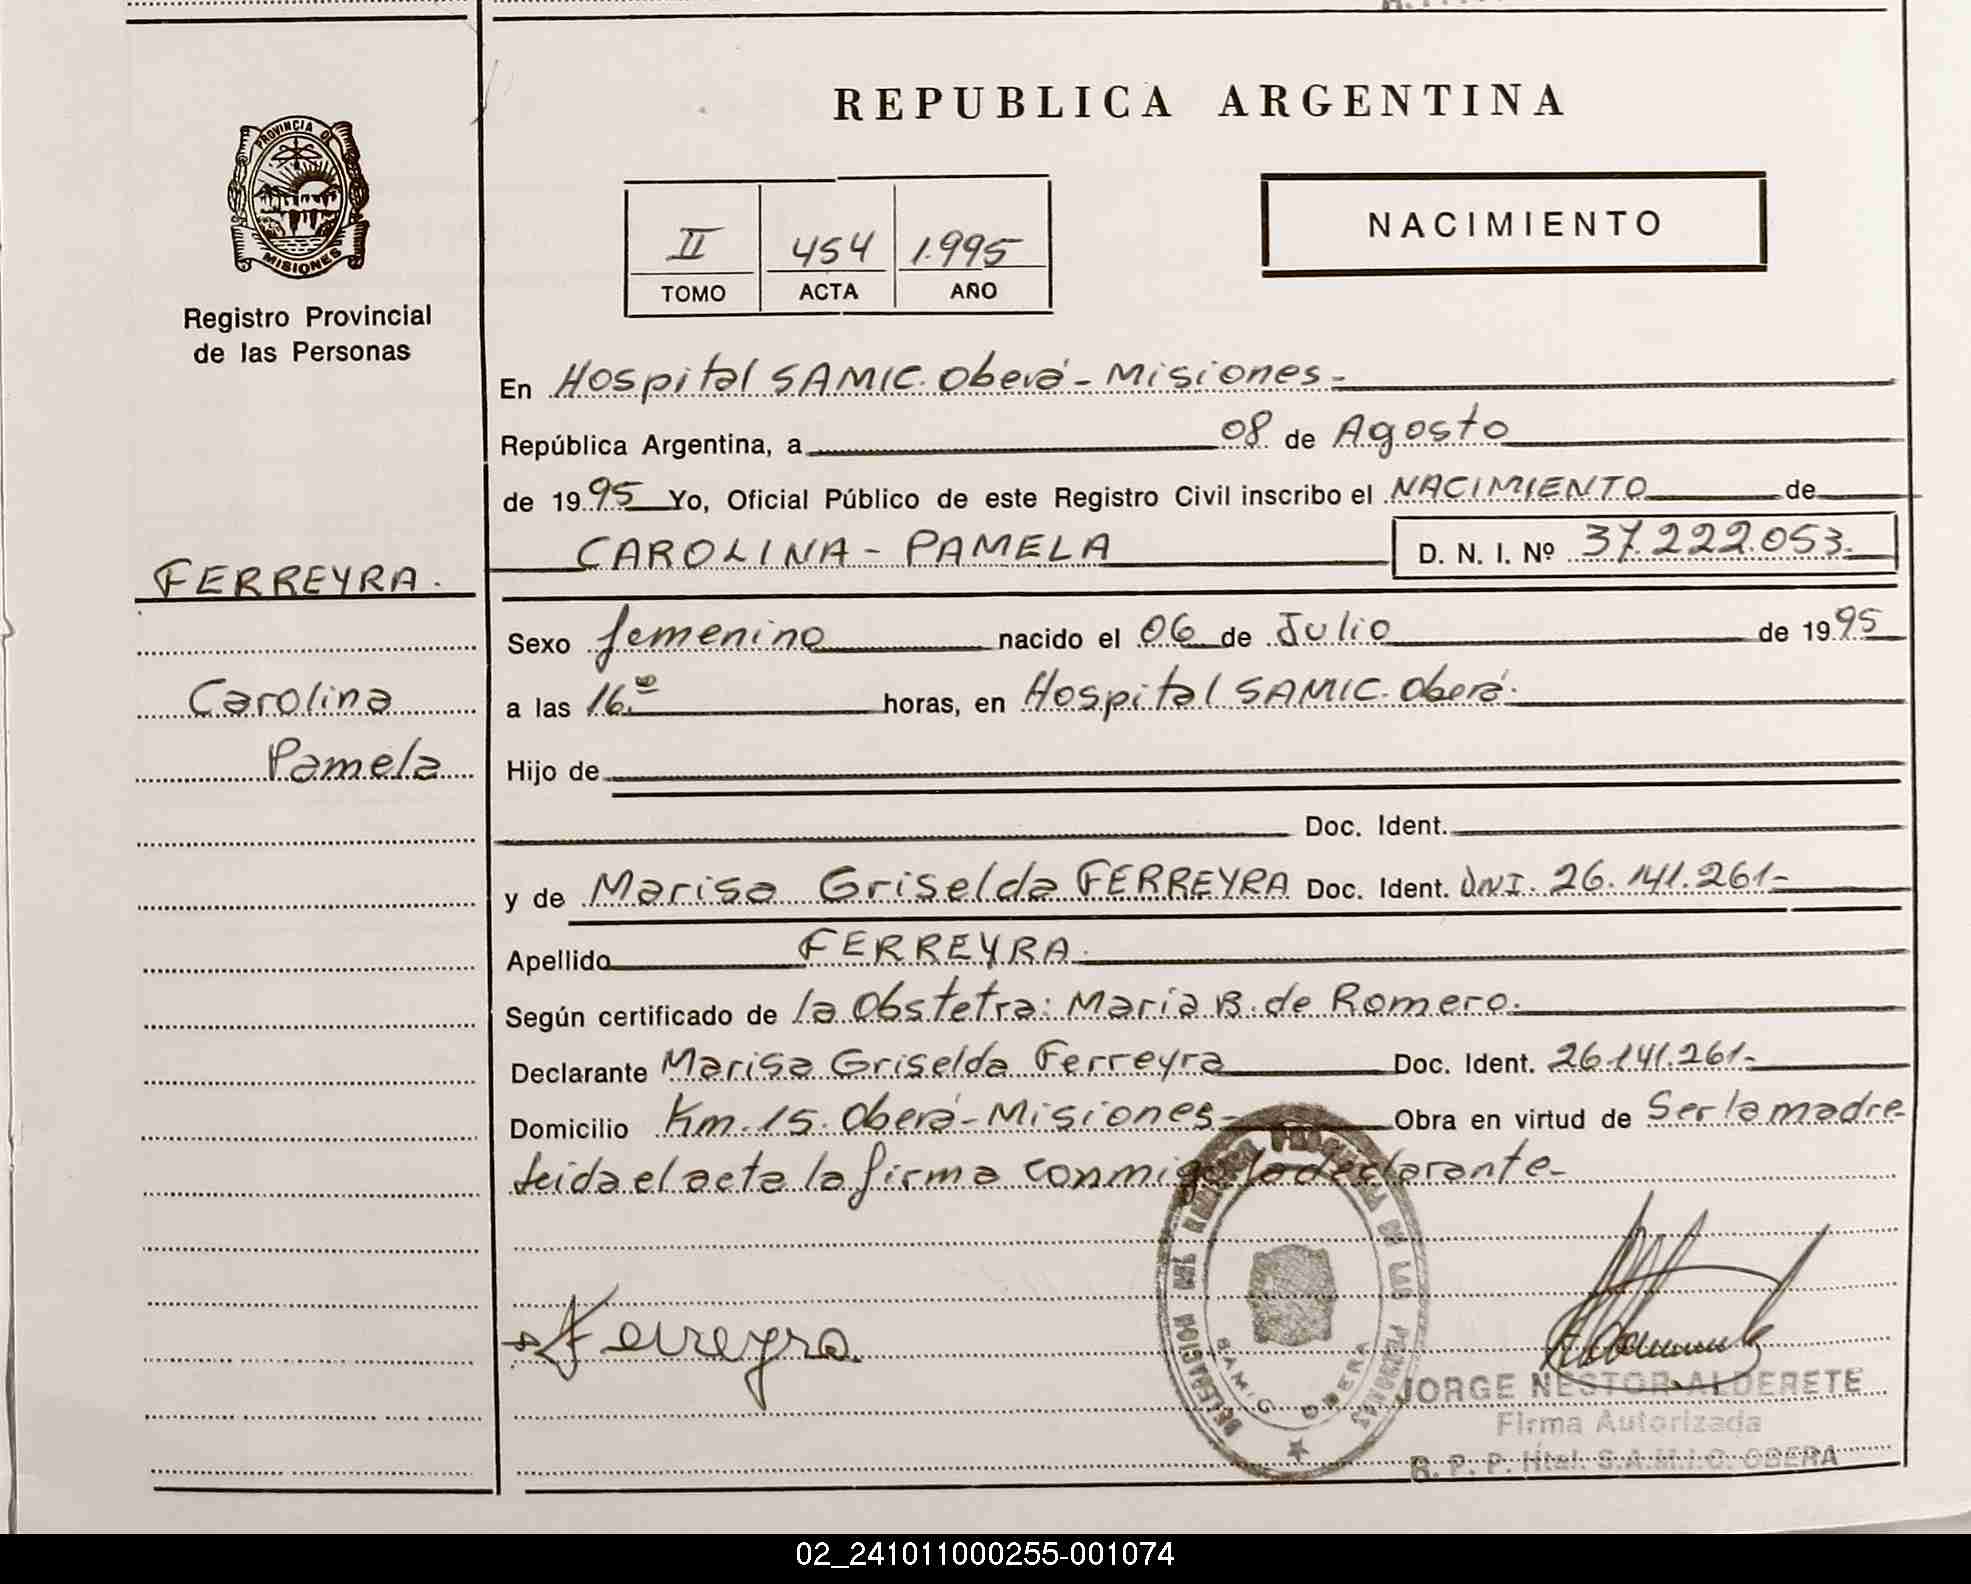 REPUBLICA ARGENTINA
PROVINCIA DE
MISIONES
Registro Provincial
de las Personas
II 454 1.995
TOMO ACTA AÑO
NACIMIENTO
En Hospital SAMIC. Oberá - Misiones -
República Argentina, a 08 de Agosto
de 1995 Yo, Oficial Público de este Registro Civil inscribo el NACIMIENTO de
CAROLINA - PAMELA D. N. I. Nº 37.222.053.
FERREYRA.
Carolina
Pamela
Sexo femenino nacido el 06 de Julio de 1995
a las 16.00 horas, en Hospital SAMIC. Oberá.
Hijo de
Doc. Ident.
y de Marisa Griselda FERREYRA Doc. Ident. DNI. 26.141.261-
Apellido FERREYRA.
Según certificado de la Obstetra: Maria B. de Romero.
Declarante Marisa Griselda Ferreyra Doc. Ident. 26.141.261-
Domicilio Km. 15. Oberá - Misiones - Obra en virtud de Ser la madre
leida el acta la firma conmigo la declarante-
Ferreyra.
DELEGACION DEL REGISTRO PROVINCIAL DE LAS PERSONAS
SAMIC OBERA
JORGE NESTOR ALDERETE
Firma Autorizada
R. P. P. Htal. S.A.M.I.C. OBERA
02_241011000255-001074